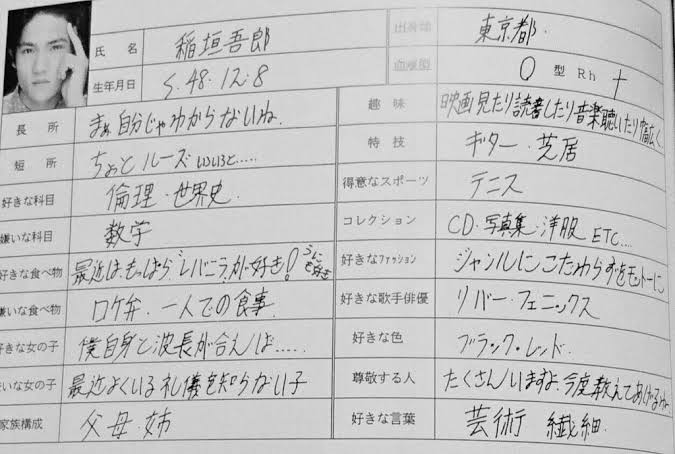 氏名 稲垣吾郎
生年月日 S.48.12.8
長所 まぁ自分じゃわからないね。
短所 ちょとルーズ いいろと.....
好きな科目 倫理・世界史.
嫌いな科目 数学
好きな食べ物 最近はもっぱら"レバニラ"が好き! うにも好き
嫌いな食べ物 ロケ弁・一人での食事.
好きな女の子 僕自身と波長が合えば.....
嫌いな女の子 最近よくいる礼儀を知らない子
家族構成 父・母・姉
出身地 東京都.
血液型 O型 Rh +
趣味 映画見たり読書したり音楽聴いたり幅広く.
特技 ギター・芝居
得意なスポーツ テニス
コレクション CD・写真集・洋服 ETC....
好きなファッション ジャンルにこだわらずをモットーに
好きな歌手俳優 リバー・フェニックス
好きな色 ブラック・レッド.
尊敬する人 たくさんいますよ 今度教えてあげるね
好きな言葉 芸術 繊細.